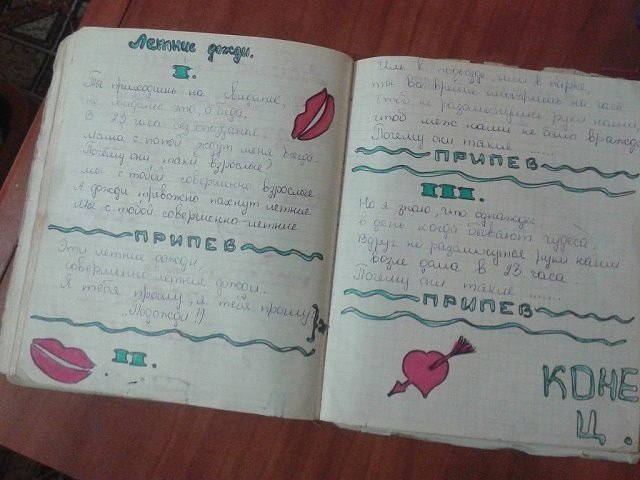 Летние дожди.
I.
Ты приходишь на свидание,
не свидание это, а беда.
В 23 часа без опоздания
Мама с папой ждут меня всегда.
Почему они, такие взрослые?
мы с тобой совершенно взрослые
А дожди тревожно пахнут летние
Мы с тобой совершенно-летние
ПРИПЕВ
Эти летние дожди,
совершенно летние дожди.
Я тебя прошу, я тебя прошу
"Подожди!"
II.
Иль в подъезде, или в парке,
ты всё время смотришь на часы
чтоб не разомкнулись руки наши,
чтоб меж нами не было вражды
Почему они такие ......
ПРИПЕВ
III.
Но я знаю, что однажды
в день когда бывают чудеса.
Вдруг не разомкнутся руки наши
возле дома в 23 часа.
Почему они такие ......
ПРИПЕВ
КОНЕ
Ц.